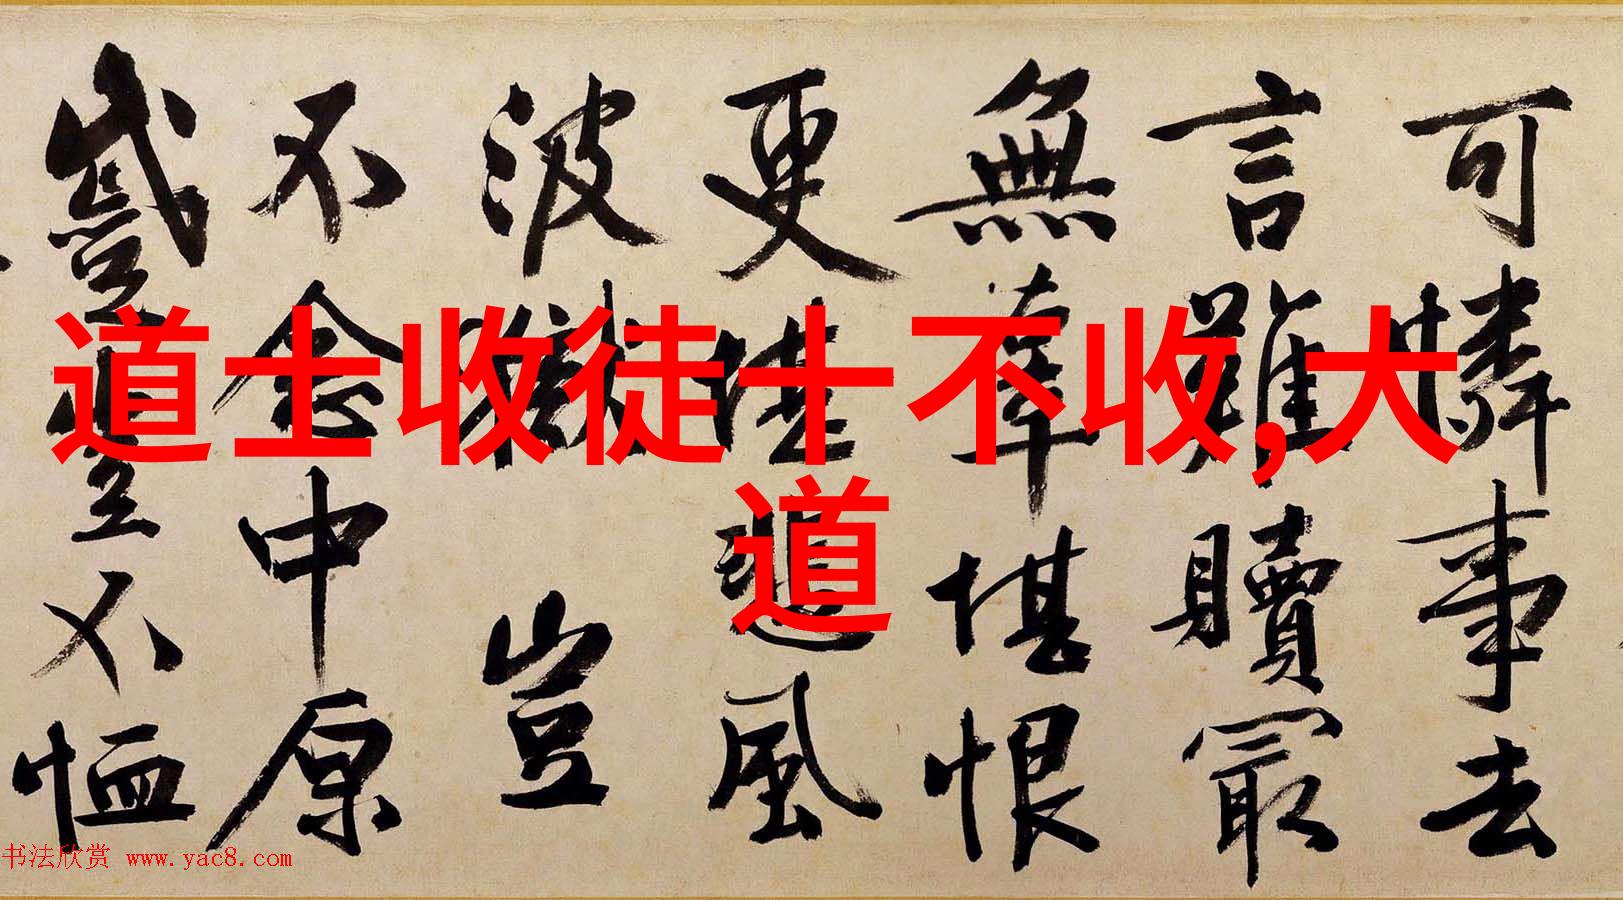 道士收徒十不收,大
道
可憐事去
言難贖最
無辜堪恨
更悲風
波獄豈
不念中原
蹙豈不恤
书法欣赏 www.yac8.com